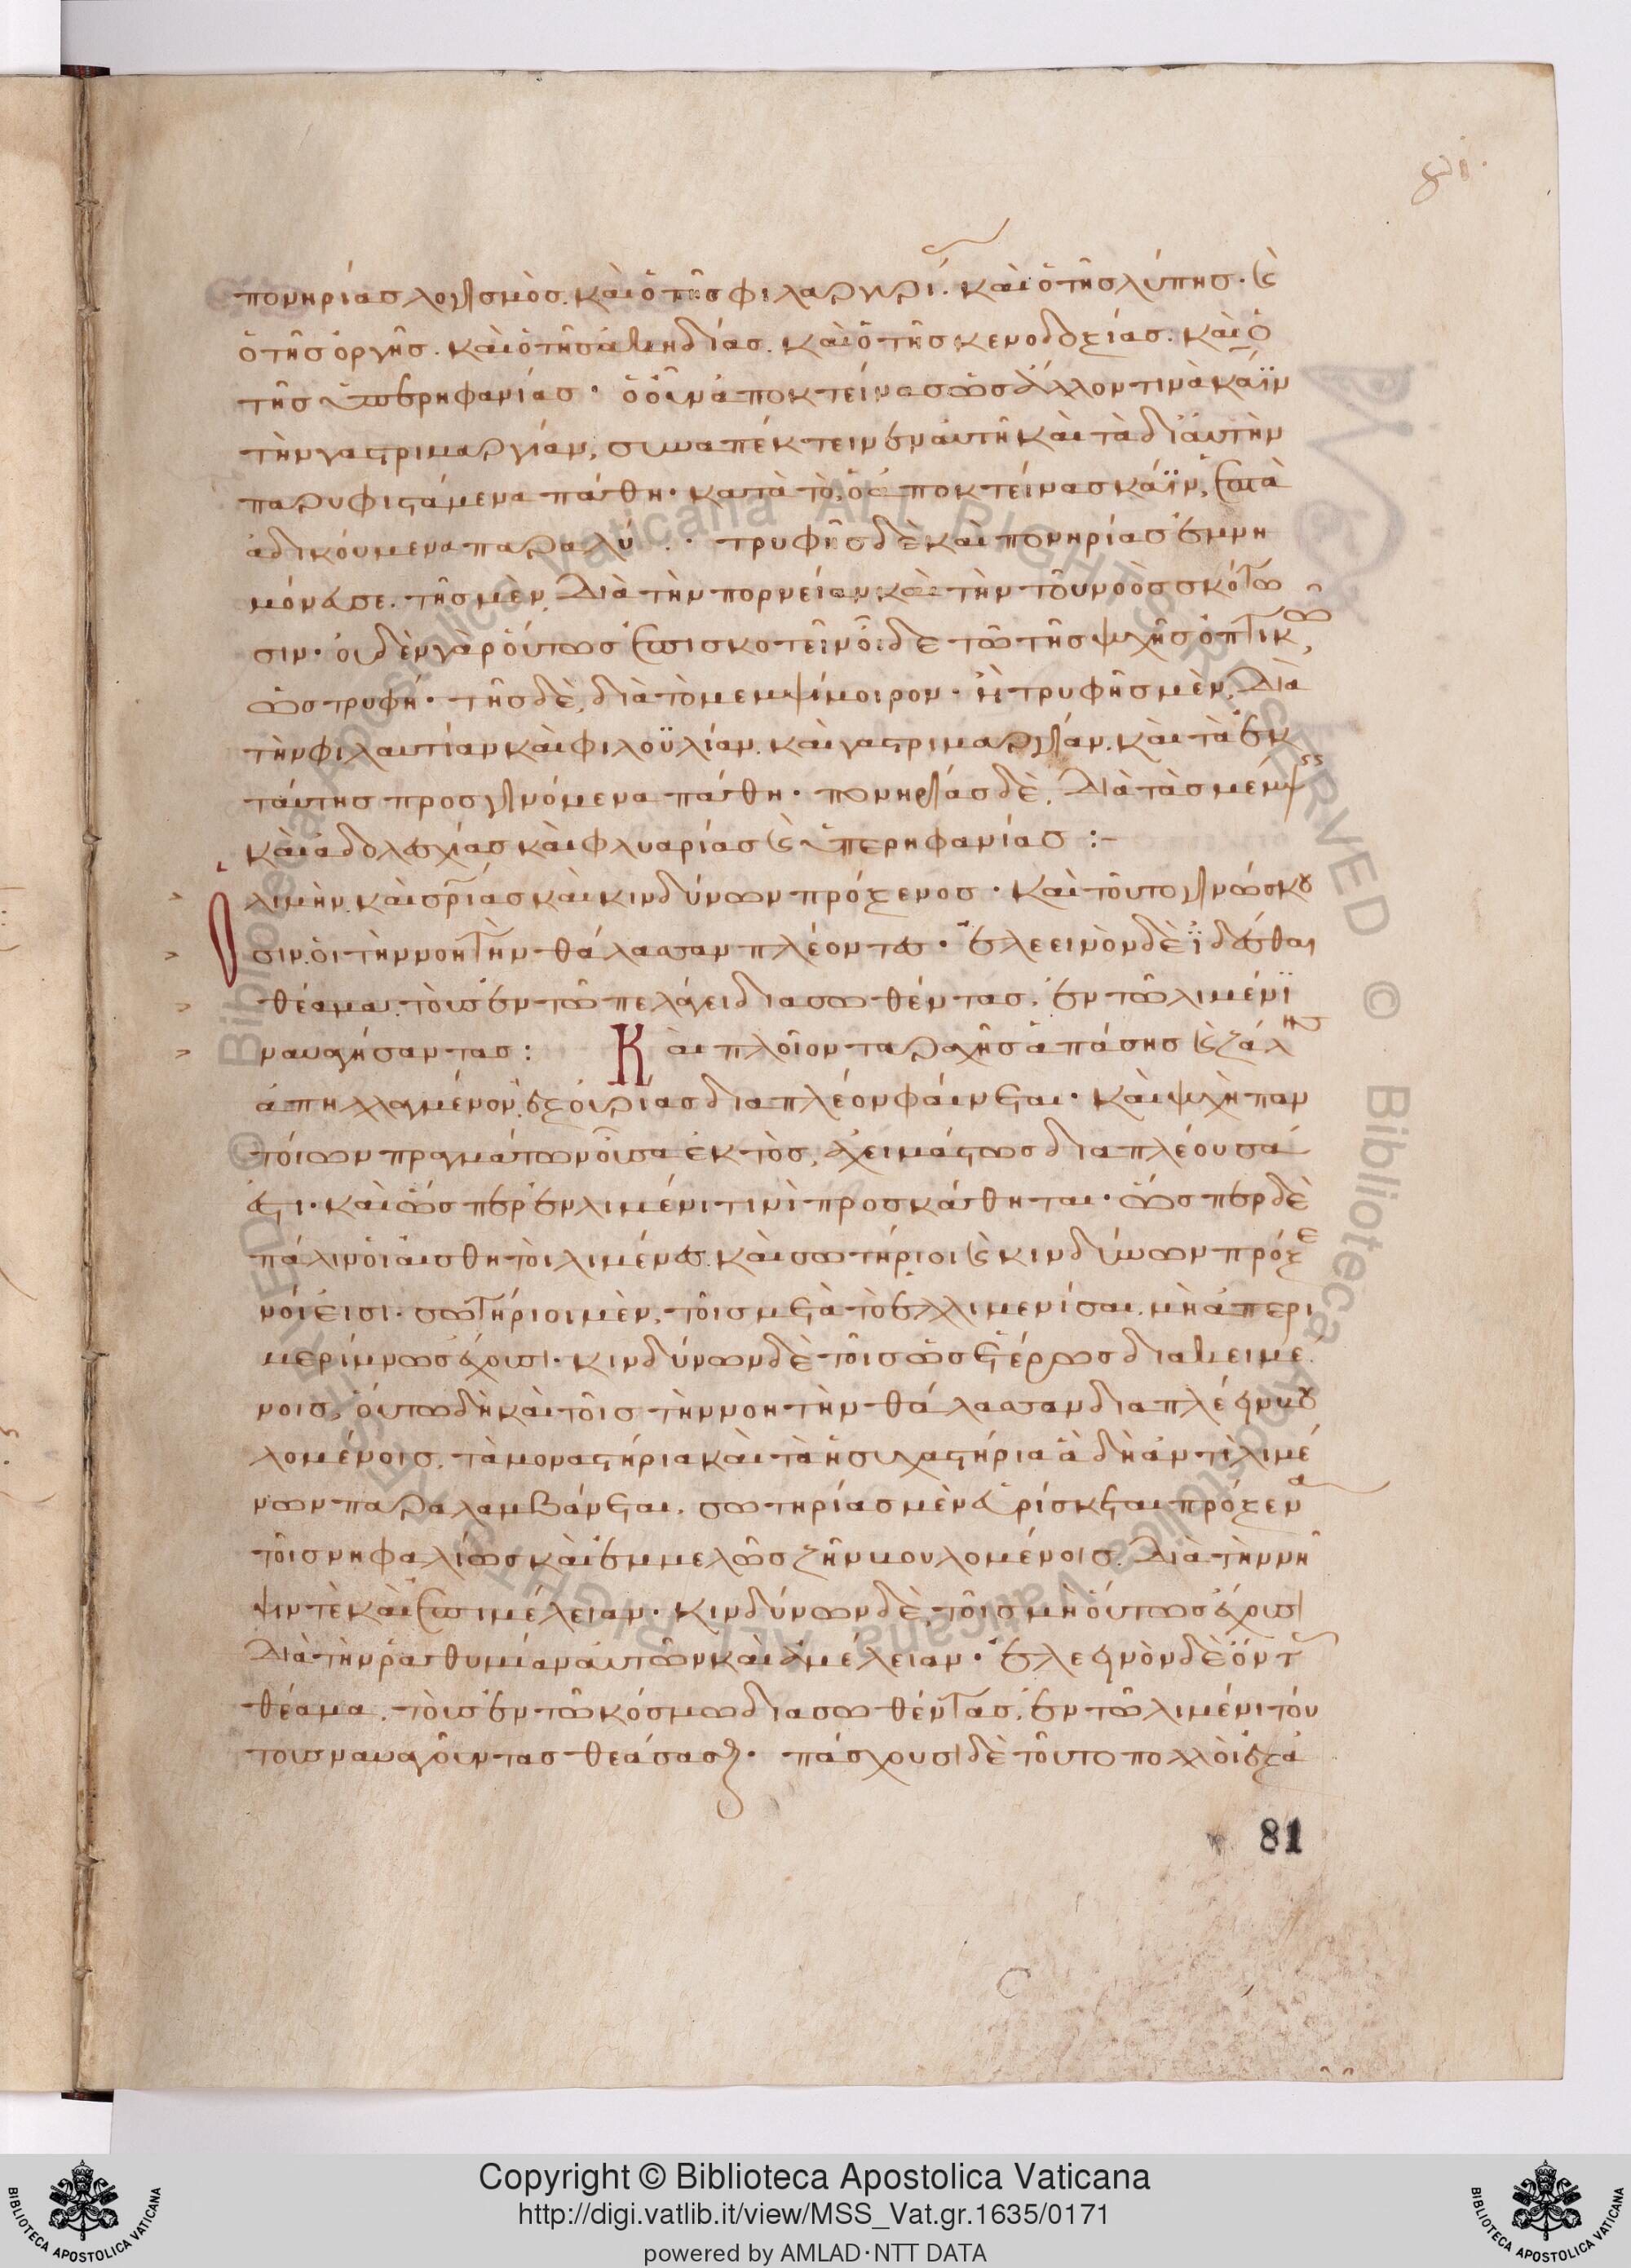 81.
πονηρίας λογισμὸς. καὶ ὁ τῆς φιλαργυρί. καὶ ὁ τῆς λύπης· ϗ
ὁ τῆς ὀργῆς. καὶ ὁ τῆς ἀκηδίας. καὶ ὁ τῆς κενοδοξίας. καὶ ὁ
τῆς ὑπερηφανίας· ὁ οὖν ἀποκτείνας ὡς ἄλλον τινὰ κάϊν
τὴν γαστριμαργίαν, συναπέκτεινεν αὐτῆ καὶ τὰ δι' αὐτὴν
παρυφιστάμενα πάθη· κατὰ τὸ, ὁ ἀποκτείνας κάϊν, ἑπτὰ
ἀδικούμενα παραλύ · τρυφῆς δὲ καὶ πονηρίας ἐμνη
μόνευσε. τῆς μὲν, διὰ τὴν πορνείαν καὶ τὴν τοῦ νοὸς σκότω
σιν· οὐδὲν γὰρ οὕτως ἐπισκοτεῖν οἶδε τῶ τῆς ψυχῆς ὀπτικῶ,
ὡς τρυφή· τῆς δὲ, διὰ τὸ μεμψίμοιρον· ἢ τρυφῆς μὲν, διὰ
τὴν φιλαυτίαν καὶ φιλοϋλίαν. καὶ γαστριμαργίαν. καὶ τὰ ἐκ
ταύτης προσγινόμενα πάθη· πονηρίας δὲ, διὰ τὰς μέμψ
καὶ ἀδολεσχίας καὶ φλυαρίας ϗ ὑπερηφανίας :-
λιμὴν καὶ σρίας καὶ κινδύνων πρόξενος· καὶ τοῦτο γινώσκου
σιν οἱ τὴν νοητὴν θάλασσαν πλέοντες· ἐλεεινὸν δὲ ἰδέσθαι
θέαμα. τοὺς ἐν τῶ πελάγει διασωθέντας, ἐν τῶ λιμένϊ
ναυαγήσαντας : Καὶ πλοῖον ταραχῆς ἁπάσης ϗ ζάλης
ἀπηλλαγμένον, ἐξ οὐρίας διαπλέον φαίνεται· καὶ ψυχὴ παν
τοίων πραγμάτων οὖσα ἐκτὸς, ἀχειμάστως διαπλέουσά
ἐστι· καὶ ὥσπερ ἐν λιμένι τινὶ προσκάθηται· ὥσπερ δὲ
πάλιν οἱ αἰσθητοὶ λιμένες καὶ σωτήριοι ϗ κινδύνων πρόξε
νοί εἰσι· σωτήριοι μὲν, τοῖς μετὰ τὸ ἐλλιμενίσαι. μὴ ἀπερι
μερίμνως ἔχουσι· κινδύνων δὲ τοῖς ὡς ἑτέρως διακειμέ
νοις, οὕτω δὴ καὶ τοῖς τὴν νοητὴν θάλασσαν διαπλέειν βου
λομένοις, τὰ μοναστήρια καὶ τὰ ἡσυχαστήρια ἃ δὴ ἀντὶ λιμέ
νων παραλαμβάνεται. σωτηρίας μὲν εὑρίσκεται πρόξενα
τοῖς νηφαλίως καὶ ἐμμελῶς ζῆν βουλομένοις. διὰ τὴν νῆ
ψιν τὲ καὶ ἐπιμέλειαν· κινδύνων δὲ, τοῖς μὴ οὕτως ἔχουσι
διὰ τὴν ῥαθυμίαν αὐτῶν καὶ ἀμέλειαν· ἐλεεινὸν δὲ ὄντ
θέαμα. τοὺς ἐν τῶ κόσμω διασωθέντας, ἐν τῶ λιμένι τού
τους ναυαγοῦντας θεάσασθ· πάσχουσι δὲ τοῦτο πολλοὶ ἐξ ἀ
81
© Biblioteca Apostolica Vaticana ALL RIGHTS RESERVED © Biblioteca Apostolica Vaticana ALL RIGHTS RESERVED
Copyright © Biblioteca Apostolica Vaticana
http://digi.vatlib.it/view/MSS_Vat.gr.1635/0171
powered by AMLAD·NTT DATA
BIBLIOTECA APOSTOLICA VATICANA
BIBLIOTECA APOSTOLICA VATICANA